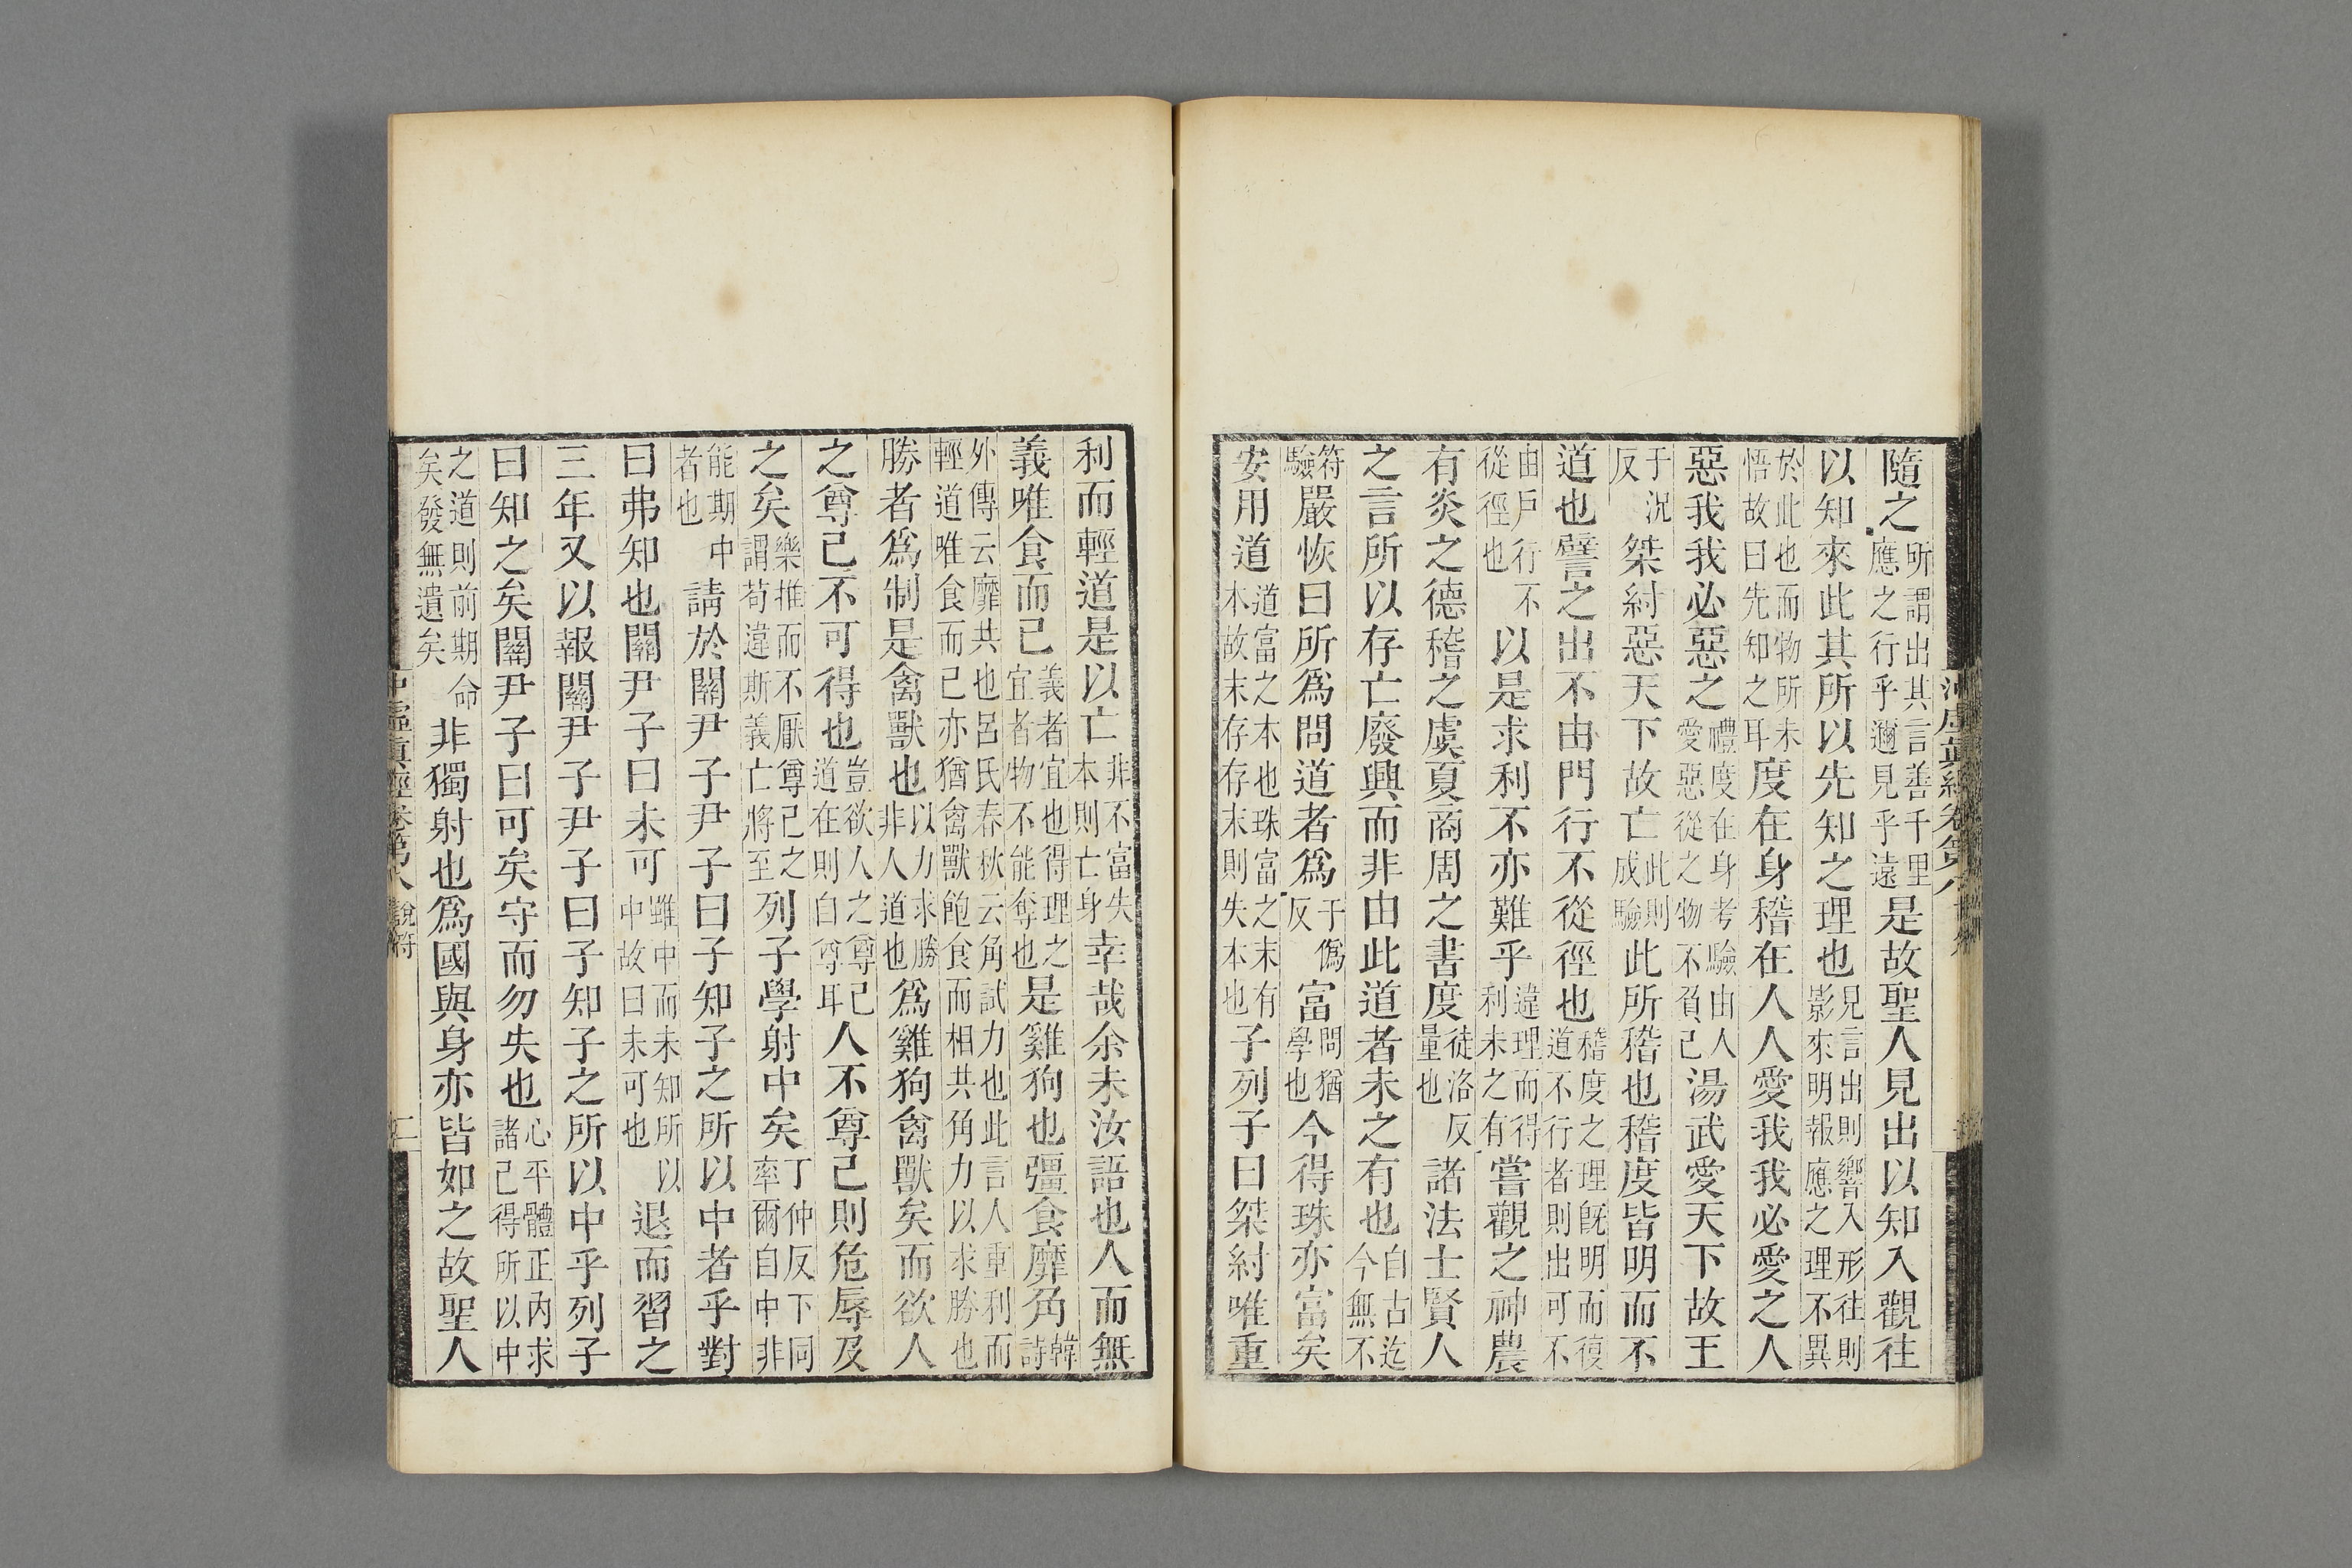 隨之所謂出其言善千里應之行乎邇見乎遠是故聖人見出以知入觀往
以知來此其所以先知之理也見言出則響入形往則影來明報應之理不異
於此也而物所未悟故曰先知之耳度在身稽在人人愛我我必愛之人
惡我我必惡之禮度在身考驗由人愛惡從之物不負己湯武愛天下故王
于況反桀紂惡天下故亡此則成驗此所稽也稽度皆明而不
道也譬之出不由門行不從徑也稽度之理旣明而復道不行者則出可不
由戶行不從徑也以是求利不亦難乎違理而得利未之有嘗觀之神農
有炎之德稽之虞夏商周之書度徒洛反量也諸法士賢人
之言所以存亡廢興而非由此道者未之有也自古迄今無不
符驗嚴恢曰所爲問道者爲于僞反富問猶學也今得珠亦富矣
安用道道富之本也珠富之末有本故末存存末則失本也子列子曰桀紂唯重
利而輕道是以亡非不富失本則亡身幸哉余未汝語也人而無
義唯食而已義者宜也得理之宜者物不能奪也是雞狗也彊食靡角韓詩
外傳云靡共也呂氏春秋云角試力也此言人重利而輕道唯食而已亦猶禽獸飽食而相共角力以求勝也
勝者爲制是禽獸也以力求勝非人道也爲雞狗禽獸矣而欲人
之尊己不可得也豈欲人之尊己道在則自尊耳人不尊己則危辱及
之矣樂推而不厭尊己之謂苟違斯義亡將至列子學射中矣丁仲反下同率爾自中非
能期中者也請於關尹子尹子曰子知子之所以中者乎對
曰弗知也關尹子曰未可雖中而未知所以中故曰未可也退而習之
三年又以報關尹子尹子曰子知子之所以中乎列子
曰知之矣關尹子曰可矣守而勿失也心平體正內求諸己得所以中
之道則前期命矣發無遺矣非獨射也爲國與身亦皆如之故聖人
沖虛眞經卷第八 說符 二